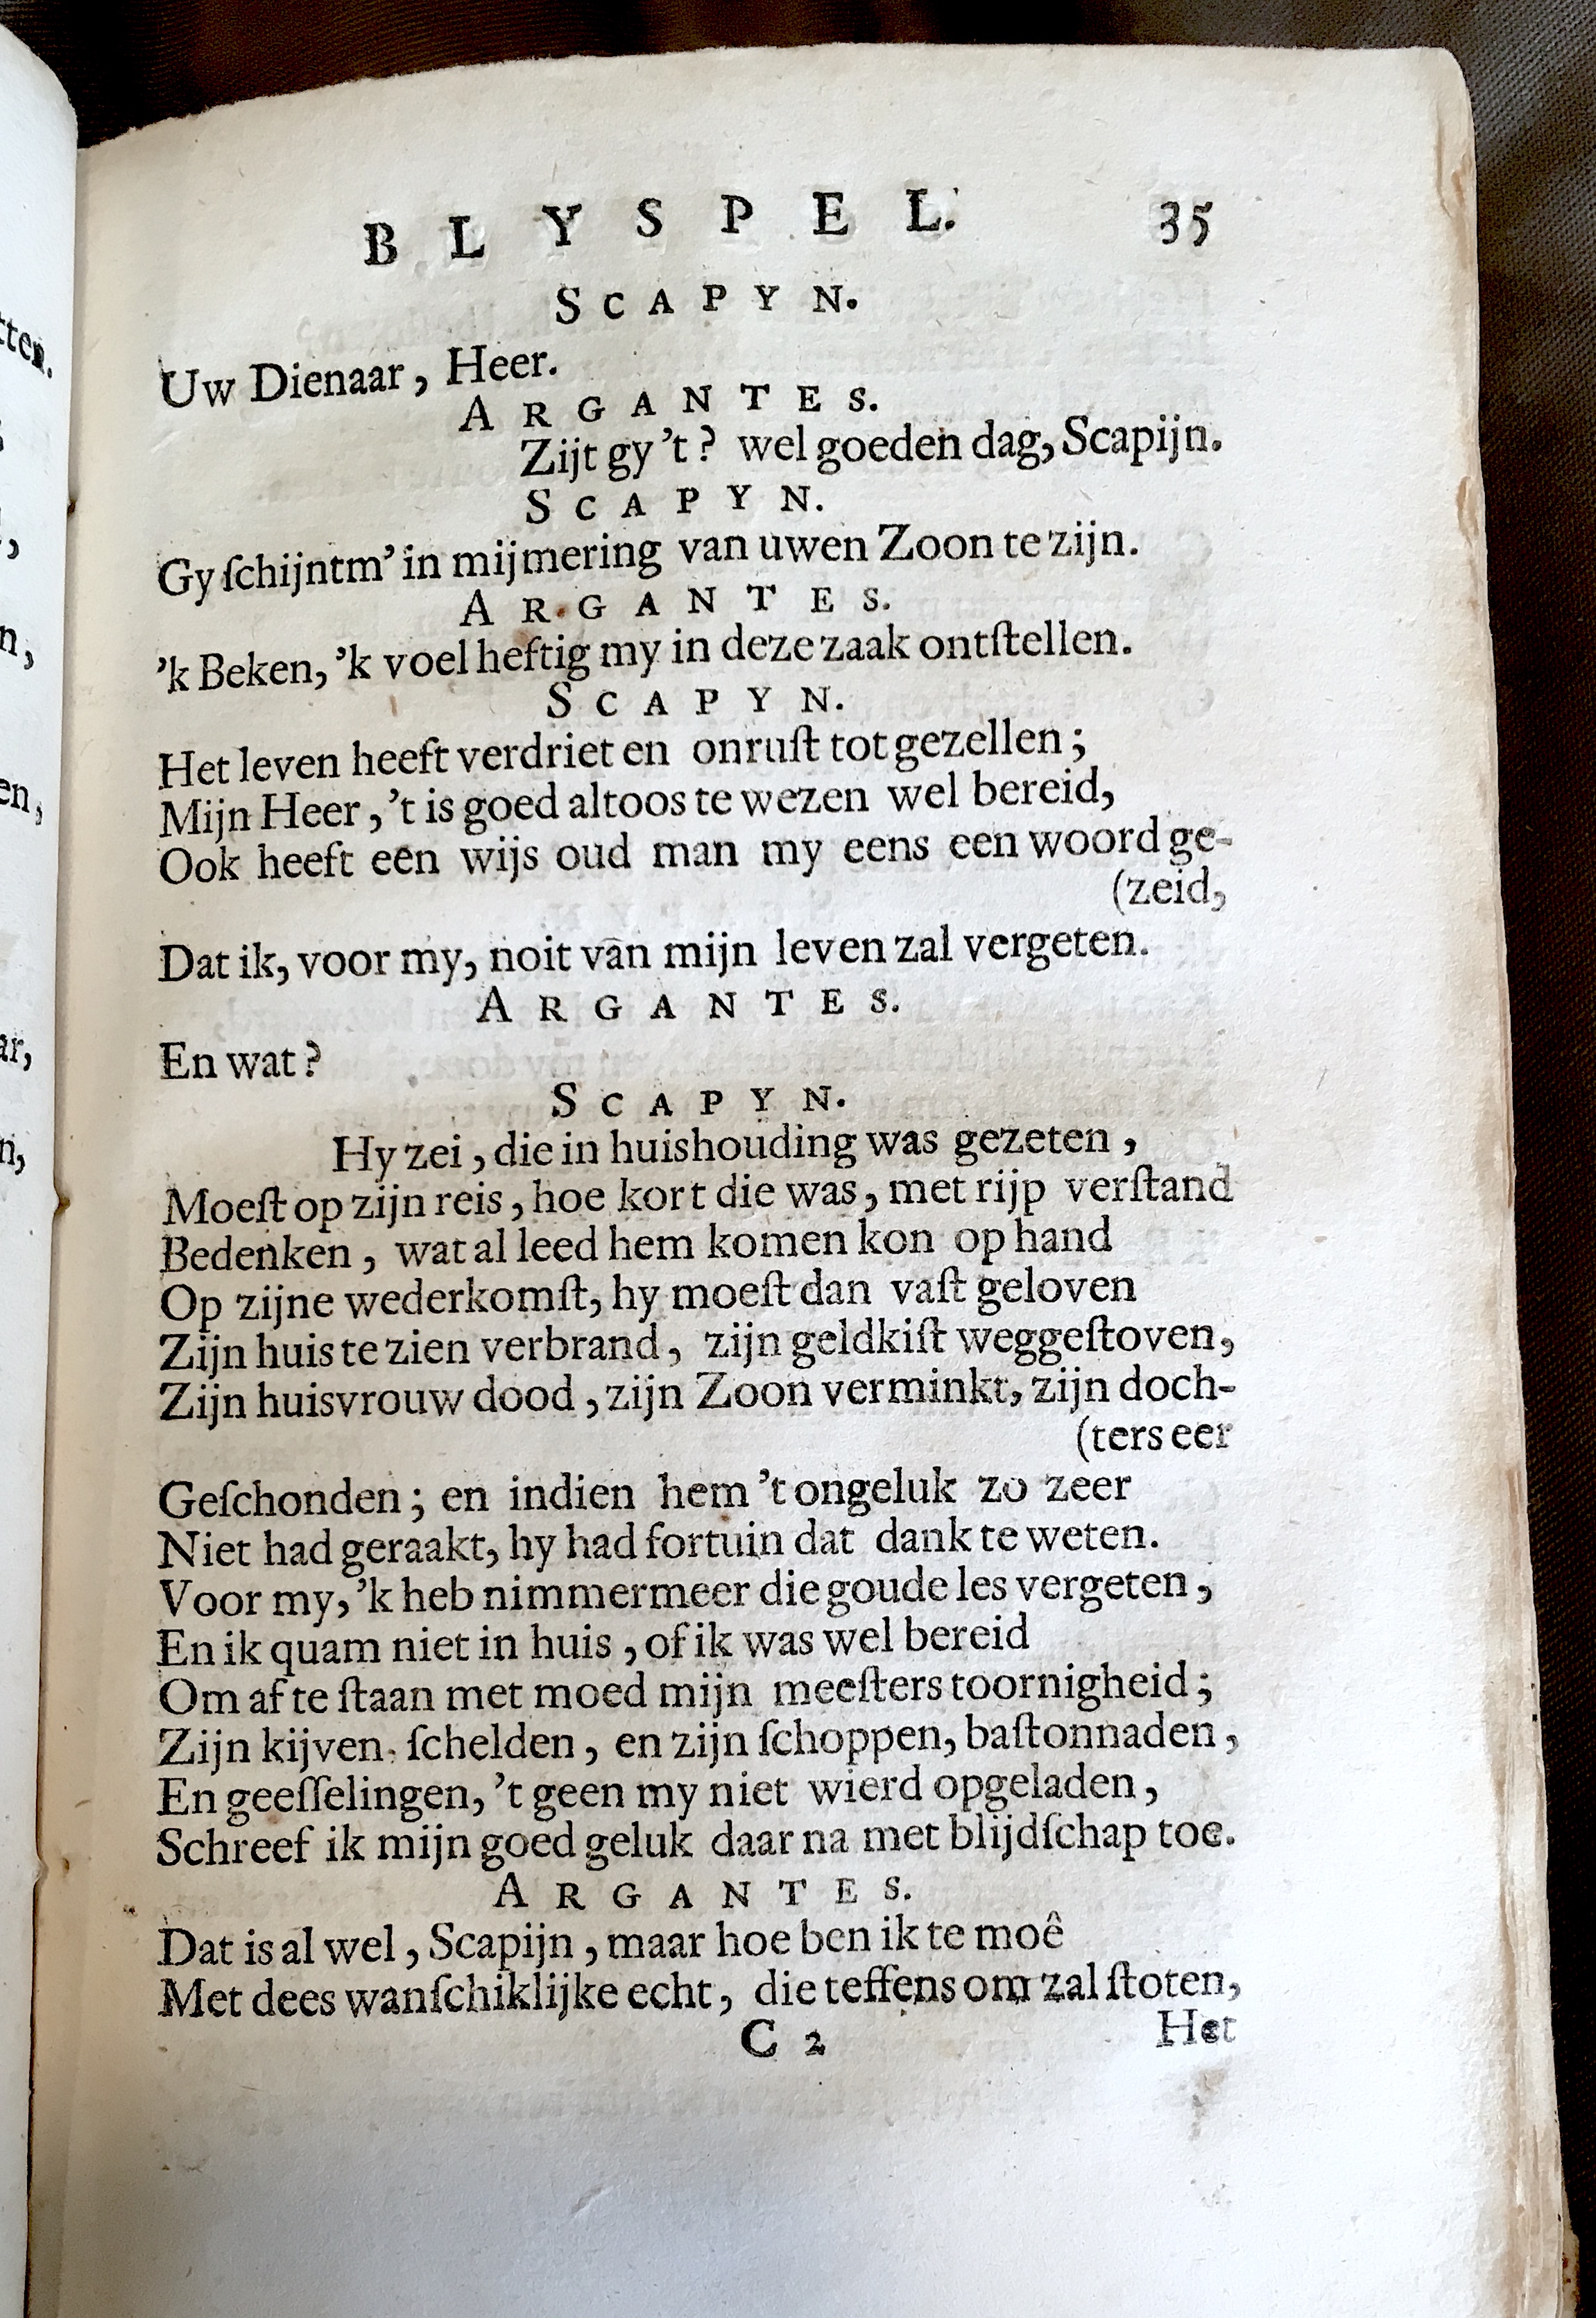 BLYSPEL. 35
SCAPYN.
Uw Dienaar, Heer.
ARGANTES.
Zijt gy 't? wel goeden dag, Scapijn.
SCAPYN.
Gy ſchijnt m' in mijmering van uwen Zoon te zijn.
ARGANTES.
'k Beken, 'k voel heftig my in deze zaak ontſtellen.
SCAPYN.
Het leven heeft verdriet en onruſt tot gezellen;
Mijn Heer, 't is goed altoos te wezen wel bereid,
Ook heeft een wijs oud man my eens een woord ge-
(zeid,
Dat ik, voor my, noit van mijn leven zal vergeten.
ARGANTES.
En wat?
SCAPYN.
Hy zei, die in huishouding was gezeten,
Moeſt op zijn reis, hoe kort die was, met rijp verſtand
Bedenken, wat al leed hem komen kon op hand
Op zijne wederkomſt, hy moeſt dan vaſt geloven
Zijn huis te zien verbrand, zijn geldkiſt weggeſtoven,
Zijn huisvrouw dood, zijn Zoon verminkt, zijn doch-
(ters eer
Geſchonden; en indien hem 't ongeluk zo zeer
Niet had geraakt, hy had fortuin dat dank te weten.
Voor my, 'k heb nimmermeer die goude les vergeten,
En ik quam niet in huis, of ik was wel bereid
Om af te ſtaan met moed mijn meeſters toornigheid;
Zijn kijven, ſchelden, en zijn ſchoppen, baſtonnaden,
En geeſſelingen, 't geen my niet wierd opgeladen,
Schreef ik mijn goed geluk daar na met blijdſchap toe.
ARGANTES.
Dat is al wel, Scapijn, maar hoe ben ik te moê
Met dees wanſchiklijke echt, die teffens om zal ſtoten,
C 2 Het
tten.
n,
en,
ar,
n,